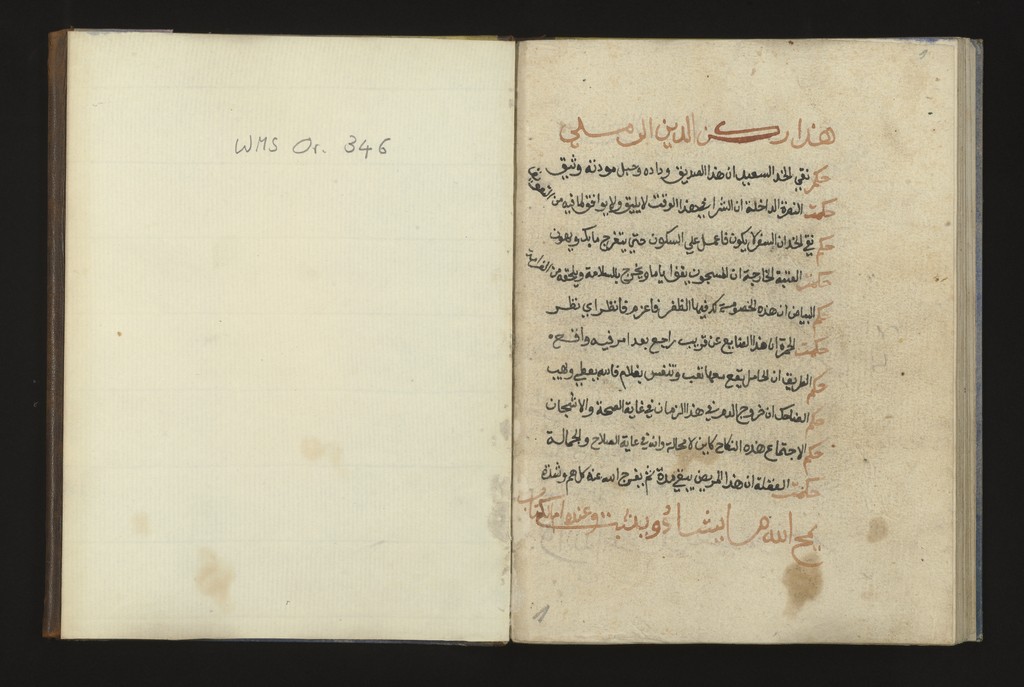 WMS Or. 346
هذا ركن الدين الرسلي
حكم نقي الخد السعيد ان هذا الصديق وداده وحبل مودته وثيق
حكمت النصرة الداخلة ان الشراء في هذا الوقت لا يليق ولا يوافق لما فيه من التعويق
حكم نقي الخد ان السفر لا يكون فاعمل علي السكون حتي يتفرج ما بك ويهون
حكمت العتبة الخارجة ان المسجون يبقى اياما ويخرج بالسلامة ويلحقه من
حكم البياض ان هذه الخصومة لك فيها الظفر فاعزم فانظر اي نظر
حكمت الحمرة ان هذا الضايع عن قريب راجع بعد امر فيه واضح
حكم الطريق ان الحامل يقع معها تعب وتتنفس بغلام فانه يعطي ويهب
حكم الضاحك ان فروج الدم في هذا الزمان في غاية الصحة والامتحان
حكم الاجتماع هذه النكاح كاين لا محالة وانه في غاية الصلاح والجمالة
حكمت العقلة ان هذا المريض يبقي مدة ثم يفرج الله عنه كل هم وشدة
يمح الله ما يشاء ويثبت وعنده ام الكتاب
1